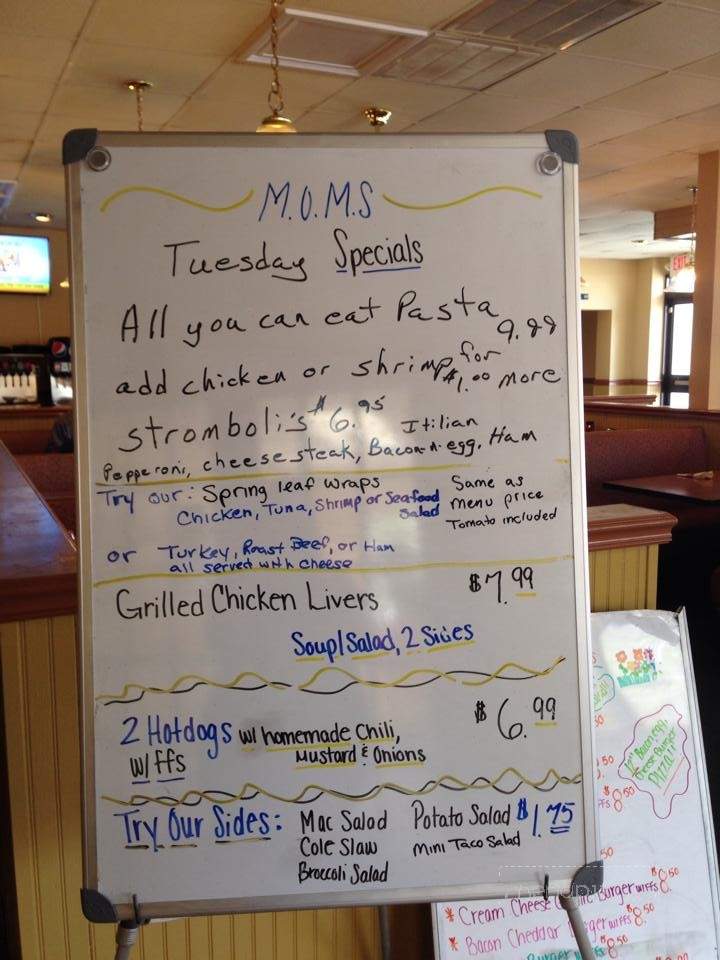 M.O.M.S
Tuesday Specials
All you can eat Pasta 9.99
add chicken or shrimp for $1.00 more
stromboli's $6.95 Itilian
Pepperoni, cheese steak, Bacon-n-egg, Ham
Try our: Spring leaf wraps Same as
Chicken, Tuna, Shrimp or Seafood menu price
Salad Tomato included
or Turkey, Roast Beef, or Ham
all served with cheese
Grilled Chicken Livers $7.99
Soup/Salad, 2 Sides
2 Hotdogs w/ homemade Chili, $6.99
w/ ffs Mustard & Onions
Try Our Sides: Mac Salad Potato Salad $1.75
Cole Slaw Mini Taco Salad
Broccoli Salad
EXIT
12" Bacon, egg,
Cheese Burger
Pizza!!
$8.50
Cream Cheese Burger w/FFS $8.50
Bacon Cheddar Burger w/FFS $8.50
Burger w/FFS $8.50